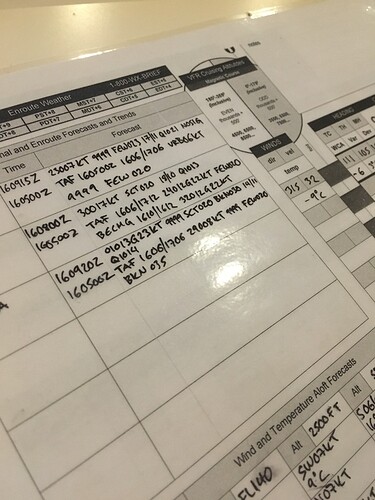 notes
Enroute Weather
1-800-WX-BRIEF
PST+8
MST+7
CST+6
EST+5
PDT+7
MDT+6
CDT+5
EDT+4
VFR Cruising Altitudes
Magnetic Course
180°-359°
(inclusive)
EVEN
thousands +
500'
0°-179°
(inclusive)
ODD
thousands +
500'
nal and Enroute Forecasts and Trends
Time
Forecast
160915Z 25007KT 9999 FEW023 17/11 Q1021 NOSIG
160500Z TAF 160500Z 1606/1706 VRB06KT
9999 FEW 020
160800Z 30017KT SCT020 10/10 Q1013
160500Z TAF 1606/1712 24012G22KT FEW020
BECMG 1610/1612 32012G22KT
160920Z 01013G23KT 9999 SCT020 BKN030 14/11
Q1014
160500Z TAF 1606/1706 29008KT 9999 FEW020
BKN 035
WINDS
dir
vel
temp
315
32
-9°C
HEADING
TC
TH
MH
WCA
Var
Dev
Wind and Temperature Aloft Forecasts
FL140
Alt
2500FT
Alt
9°C